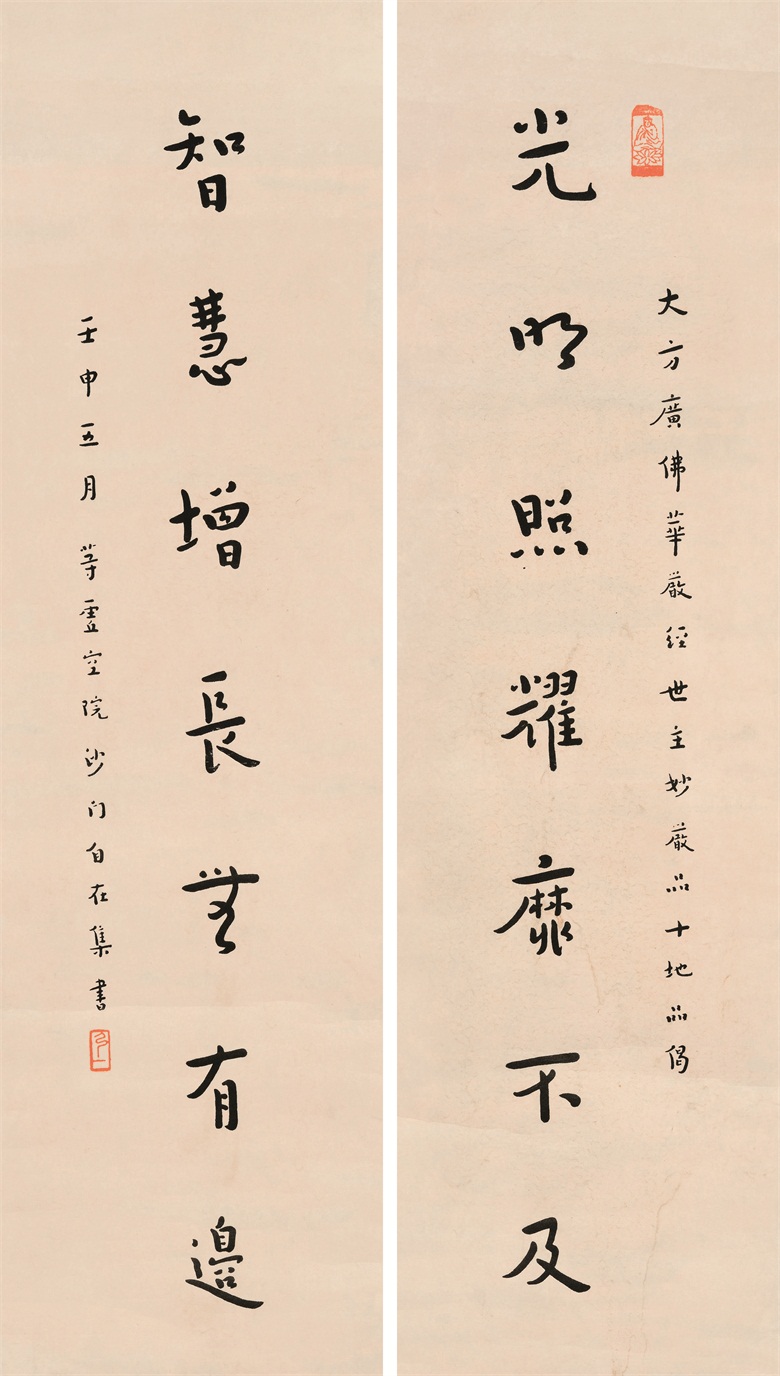 大方廣佛華嚴經世主妙嚴品十地品偈
光明照耀靡不及
智慧增長無有邊
壬申五月 等虛空院沙門自在集書
弘一